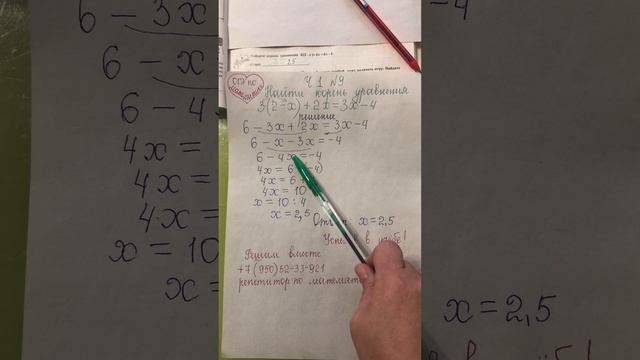 ОГЭ по математике
Ч 1 №9
Найти корень уравнения
3(2-x)+2x=3x-4
решение
6-3x+2x=3x-4
6-x-3x=-4
6-4x=-4
4x=6-4)
4x=6
4x=10
x=10:4
x=2,5
Ответ: x=2,5
Успехов в учёбе!
Решим вместе
+7(950)52-33-921
репетитор по математ